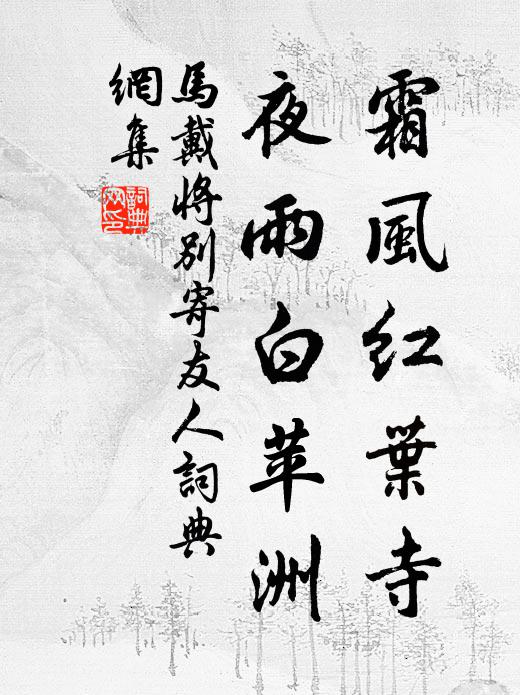 霜風红葉寺
夜雨白苹洲
馬戴将别寄友人詞典
網集
詞典
网印